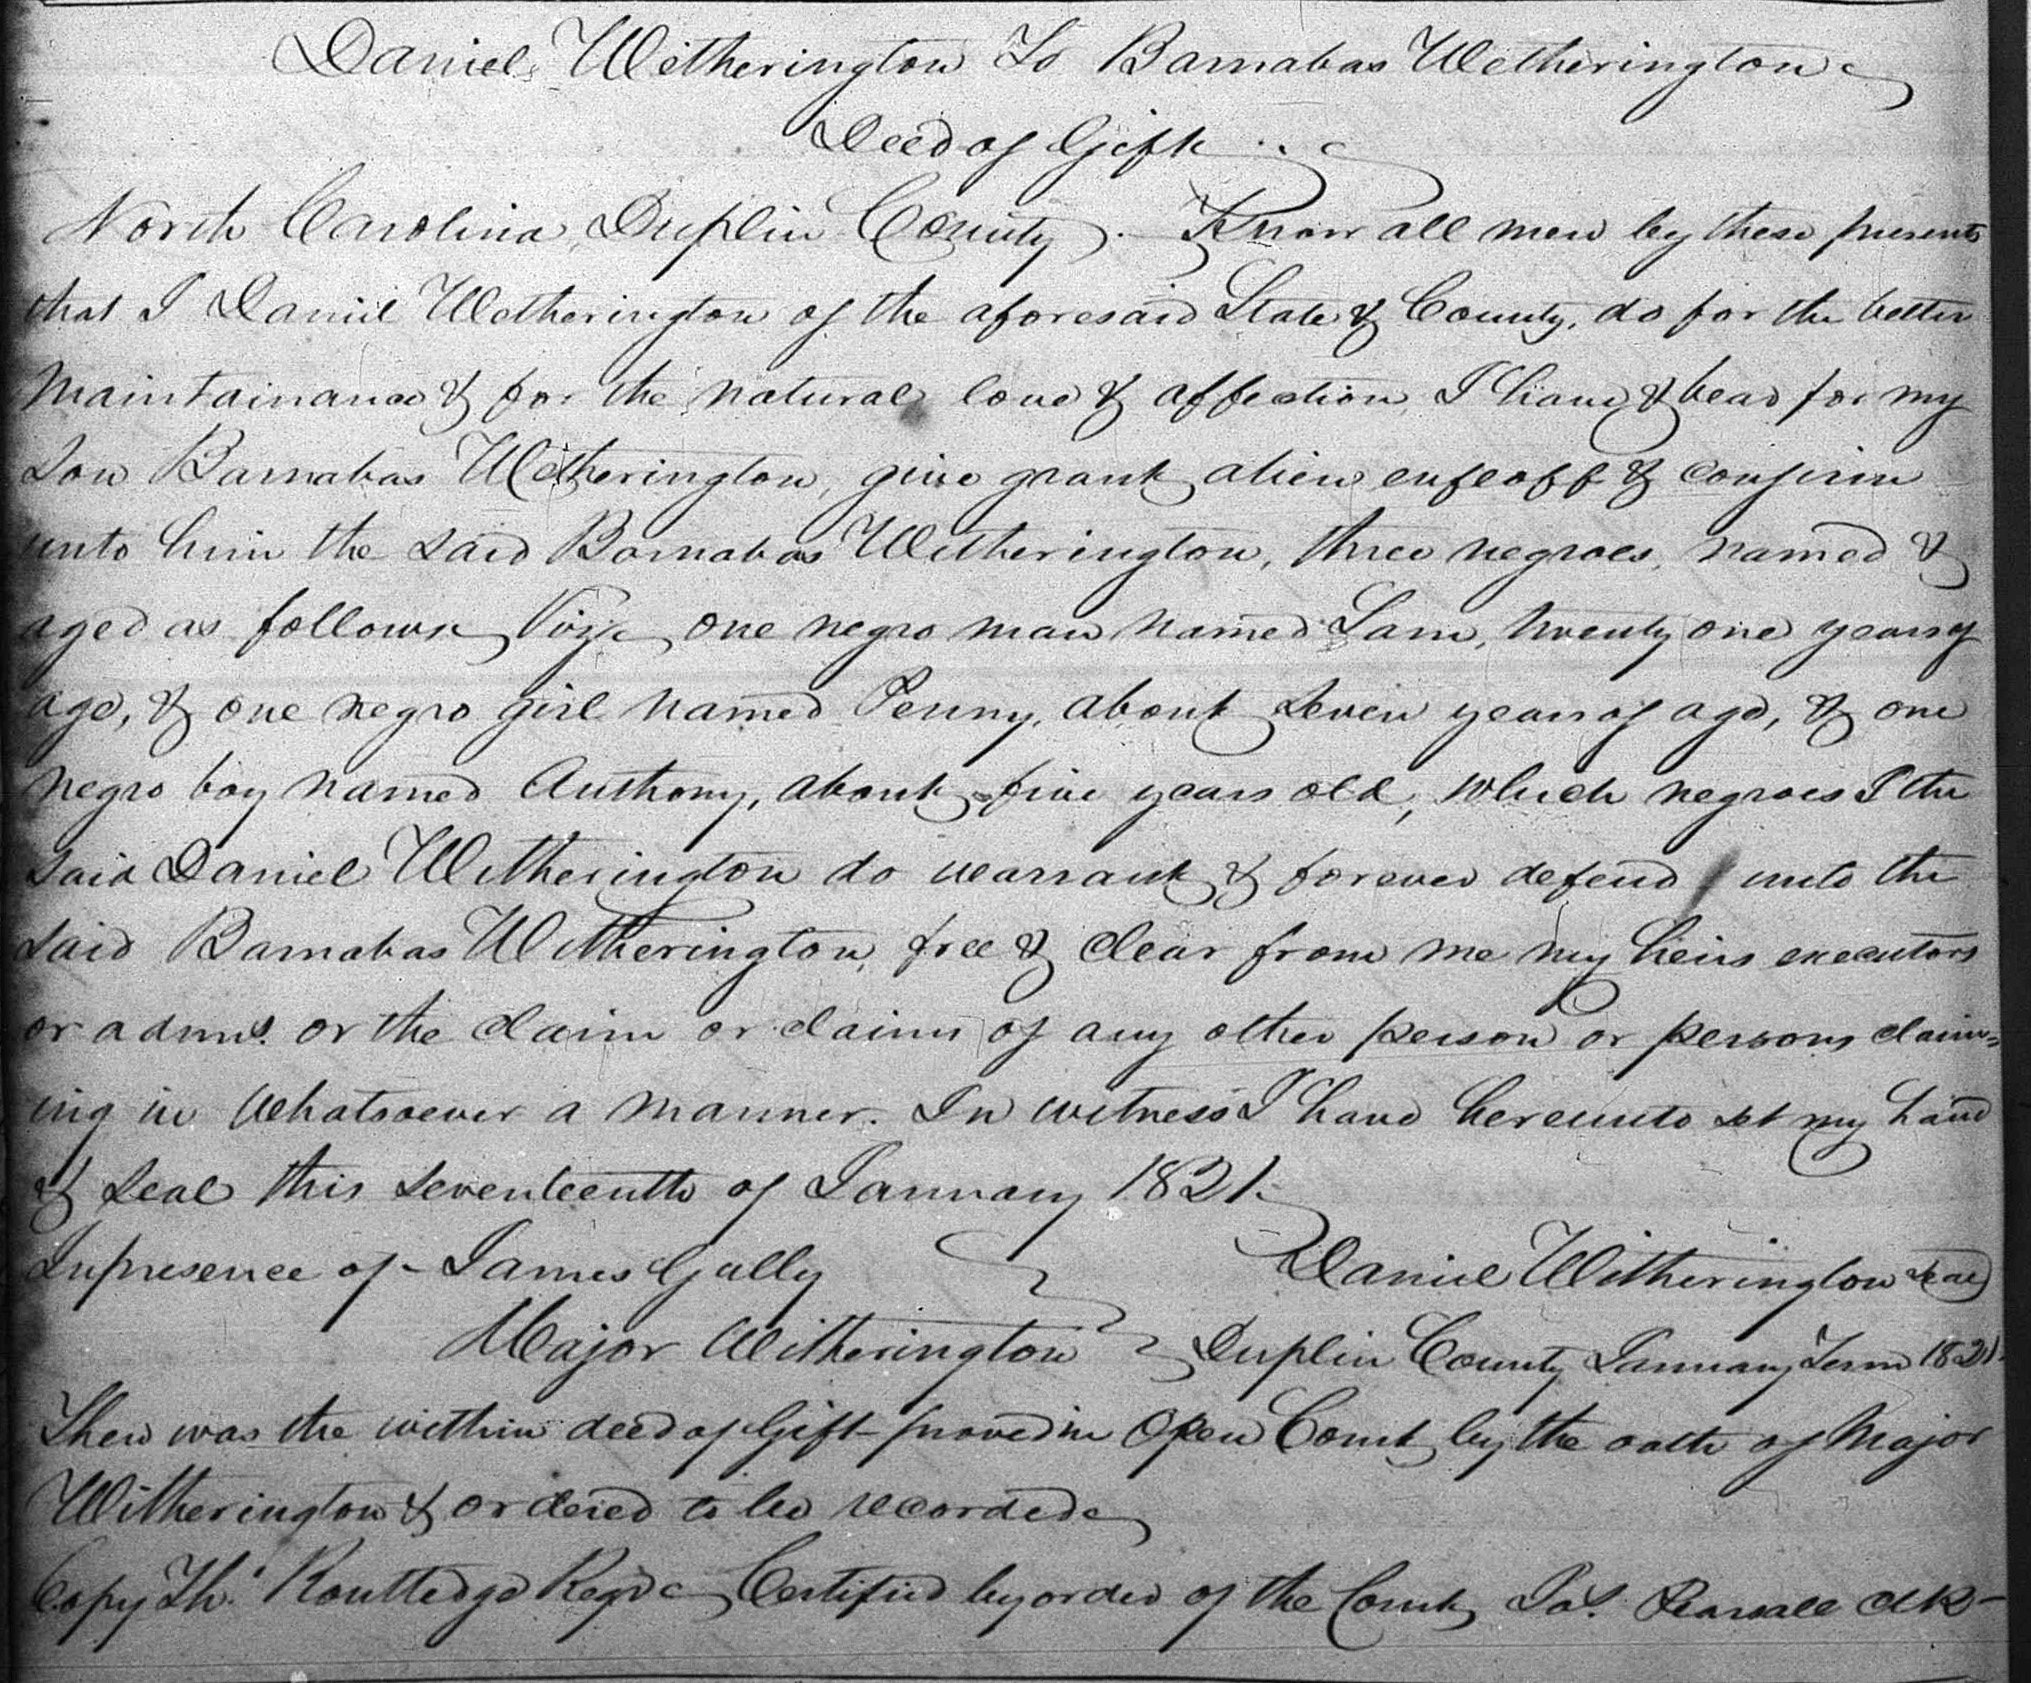 Daniel Witherington To Barnabas Witherington
Deed of Gift
North Carolina Duplin County. Know all men by these presents
that I Daniel Witherington of the aforesaid State & County, do for the better
Maintainance & for the natural love & affection I have & bear for my
Son Barnabas Witherington, give grant alien enfeoff & confirm
unto him the said Barnabas Witherington, three negroes, named &
aged as follows Viz one negro man named Sam, twenty one years of
age, & one negro girl named Penny, about Seven years of age, & one
negro boy named Anthony, about five years old, which negroes I the
said Daniel Witherington do warrant & forever defend unto the
said Barnabas Witherington, free & clear from me my heirs executors
or adms. or the claim or claims of any other person or persons claim=
ing in whatsoever a manner. In witness I have hereunto set my hand
& Seal this Seventeenth of January 1821.
In presence of - James Gully Daniel Witherington Seal
Major Witherington Duplin County January Term 1821.
Then was the within deed of Gift proved in Open Court by the oath of Major
Witherington & ordered to be recorded
Copy Th. Routledge Regr Certified by order of the Court Jas. Pearsall Clk